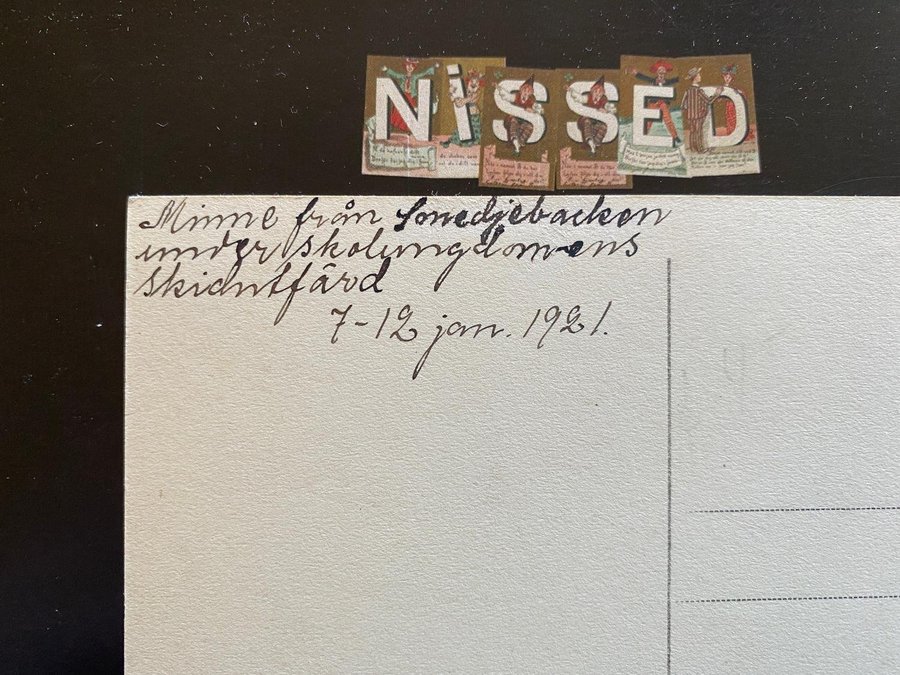 NiSSED
Minne från Smedjebacken
under skolungdomens
skidutfärd
7-12 jan. 1921.